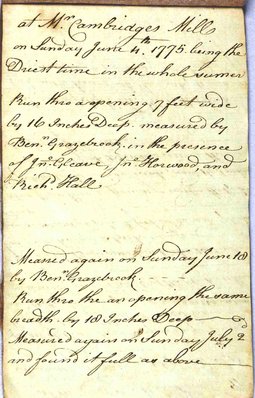 at Mr. Cambridges Mill
on Sunday June 4th 1775. being the
Driest time in the whole sumer
Run thro a opening 7 feet wide
by 16 Inches Deep. measured by
Benn. Grazebrook, in the presence
of Jno. Cleave Jno. Horwood, and
Richd. Hall
Measred again on Sunday June 18
by Benn. Grazebrook
Run thro the an openeng the same
breadth. by 18 Inches Deep
Measured again on Sunday July 2d
and found it full as above